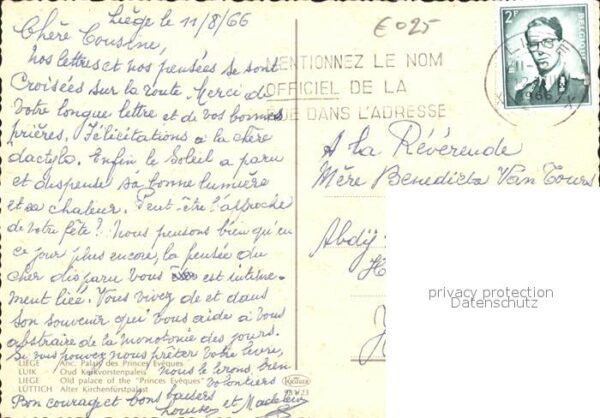 Liège le 11/8/66
Chère Cousine,
Nos lettres et nos pensées se sont
Croisées sur la route. Merci de
votre longue lettre et de vos bonnes
prières. Félicitations à la chère
dactylo. Enfin le Soleil a paru
et dispense sa bonne lumière
et sa chaleur. Peut-être l'approche
de votre fête? Nous pensons bien qu'en
ce jour plus encore, la pensée du
cher disparu vous est intime-
ment liée. Vous vivez de et dans
son souvenir qui vous aide à vous
abstraire de la monotonie des jours.
Si vous pouvez nous prêter votre livre,
nous le lirons bien
volontiers
Bon courage et bons baisers
Louise et Madeleine
LIEGE Anc. Palais des Princes Evêques
LUIK Oud Kerkvorstenpaleis
LIEGE Old palace of the "Princes Evêques"
LÜTTICH Alter Kirchenfürstpalast
Krüger
€025
MENTIONNEZ LE NOM
OFFICIEL DE LA
RUE DANS L'ADRESSE
2F
BELGIQUE
LIEGE
1966
A la Révérende
Mère Benedicta Van Tours
Abdij
privacy protection
Datenschutz